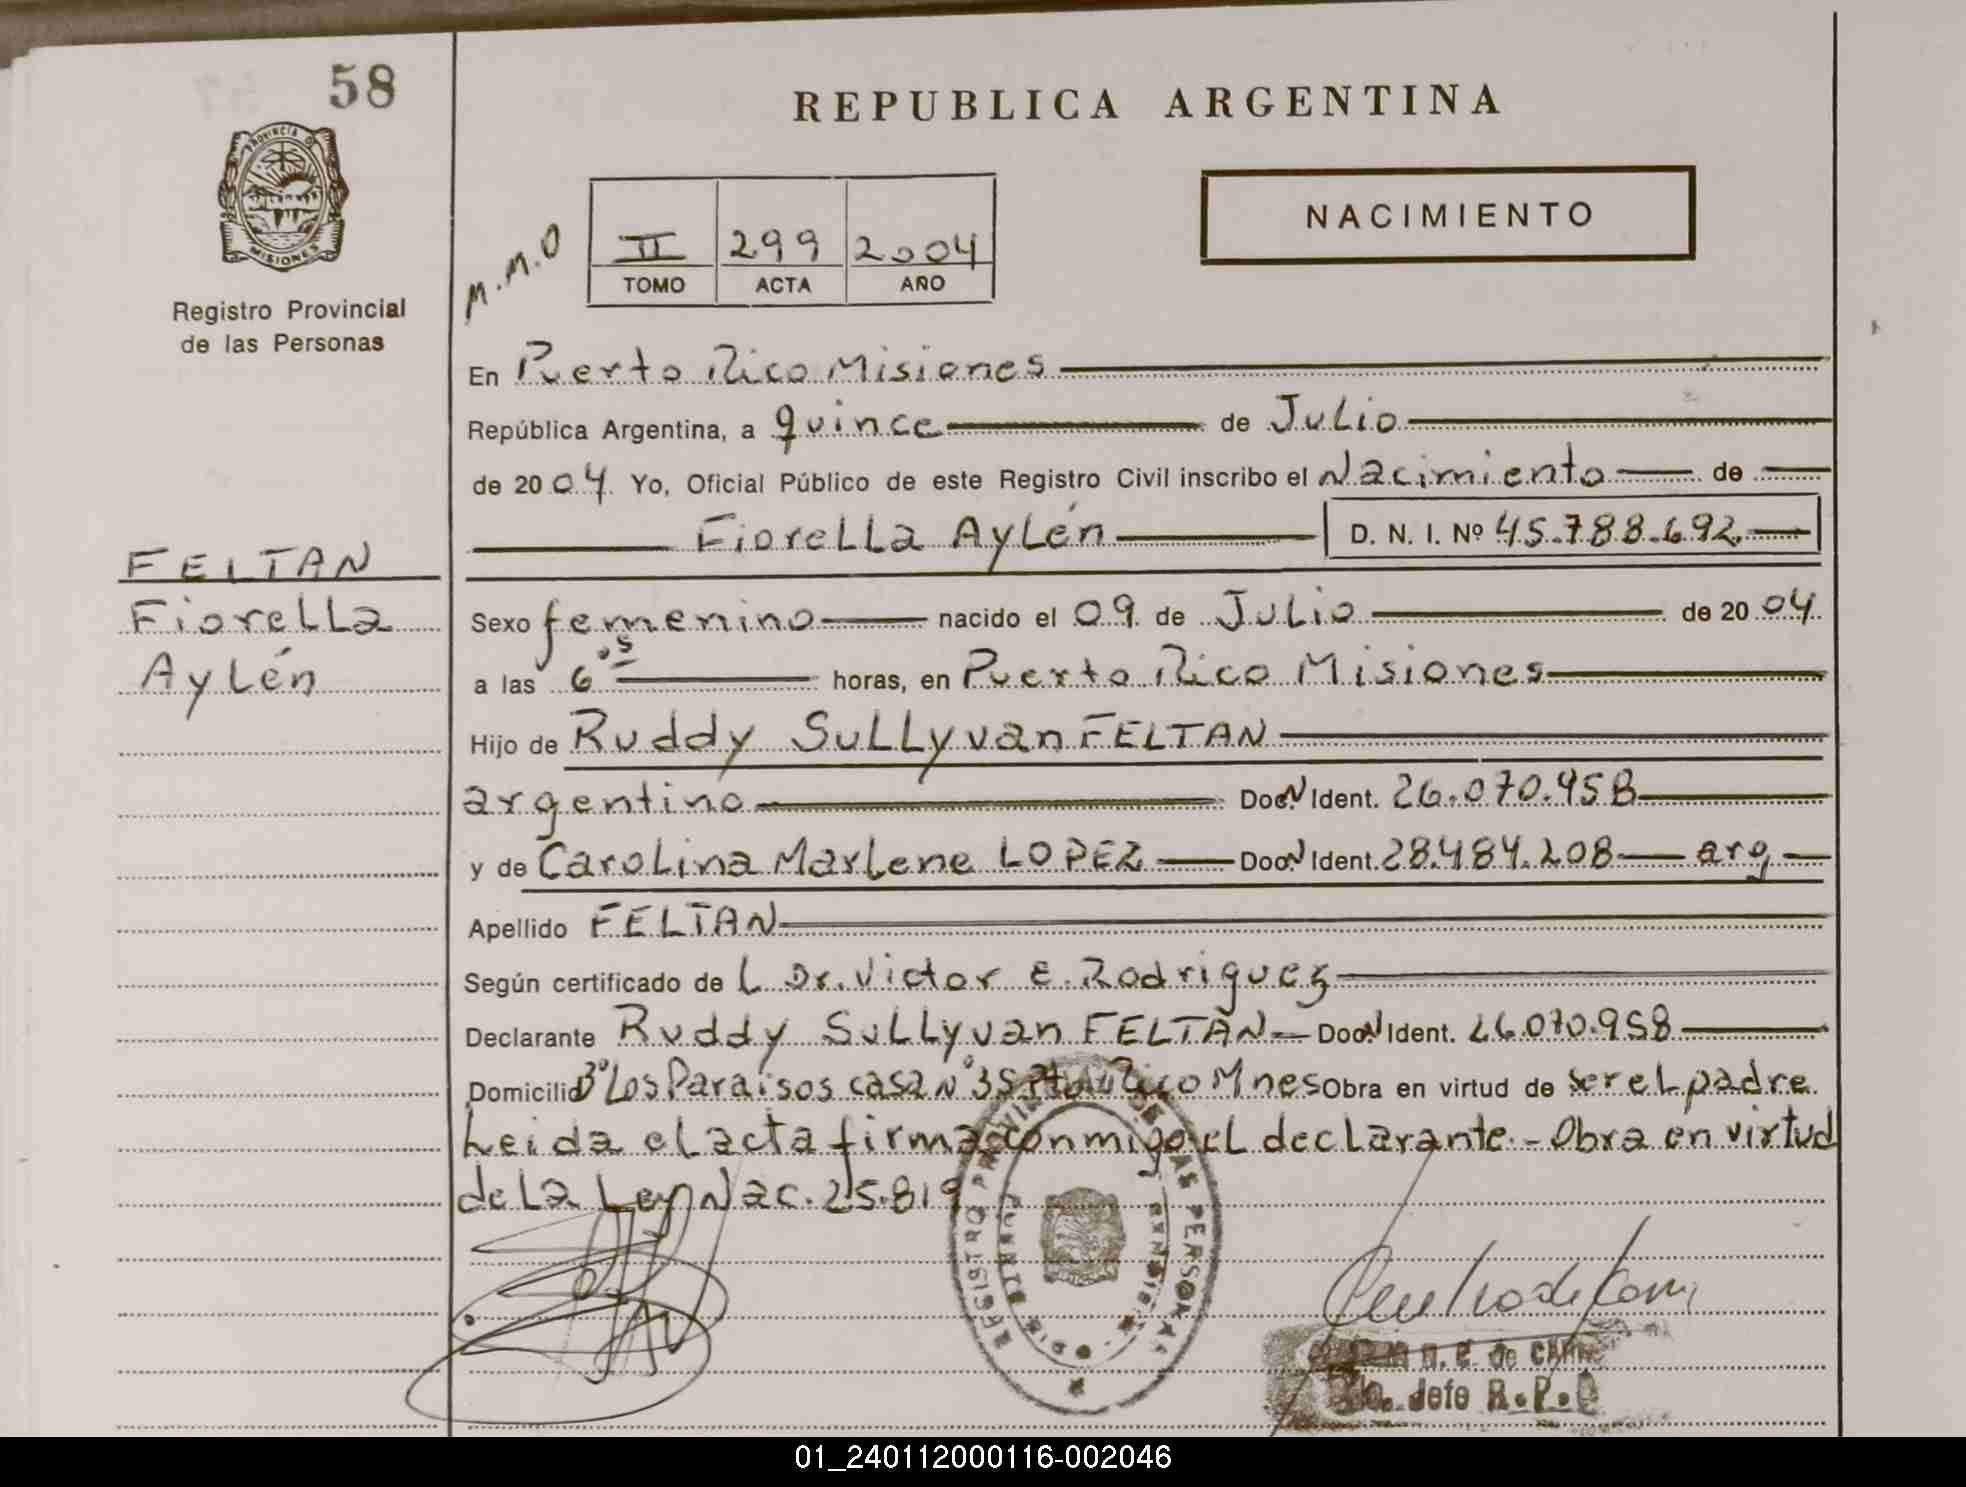 58
REPUBLICA ARGENTINA
PROVINCIA D
MISIONES
Registro Provincial
de las Personas
M.M.O
II 299 2004
TOMO ACTA AÑO
NACIMIENTO
En Puerto Rico Misiones
República Argentina, a quince de Julio
de 2004 Yo, Oficial Público de este Registro Civil inscribo el Nacimiento de
Fiorella Aylén D. N. I. Nº 45.788.692.
FELTAN
Fiorella
Aylén
Sexo femenino nacido el 09 de Julio de 2004
a las 6 05 horas, en Puerto Rico Misiones
Hijo de Ruddy Sullyvan FELTAN
argentino Doc. N Ident. 26.070.958
y de Carolina Marlene LOPEZ Doc. N Ident. 28.484.208 arg
Apellido FELTAN
Según certificado de L Dr. Victor E. Rodriguez
Declarante Ruddy Sullyvan FELTAN Doc. N Ident. 26.070.958
Domicilio Bº Los Paraisos casa Nº 35 Pto Rico Mnes Obra en virtud de ser el padre
Leida el acta firma conmigo el declarante.- Obra en virtud
de la Ley Nac. 25.819
REGISTRO PROVINCIAL DE LAS PERSONAS
de
Jefe R.P.
01_240112000116-002046